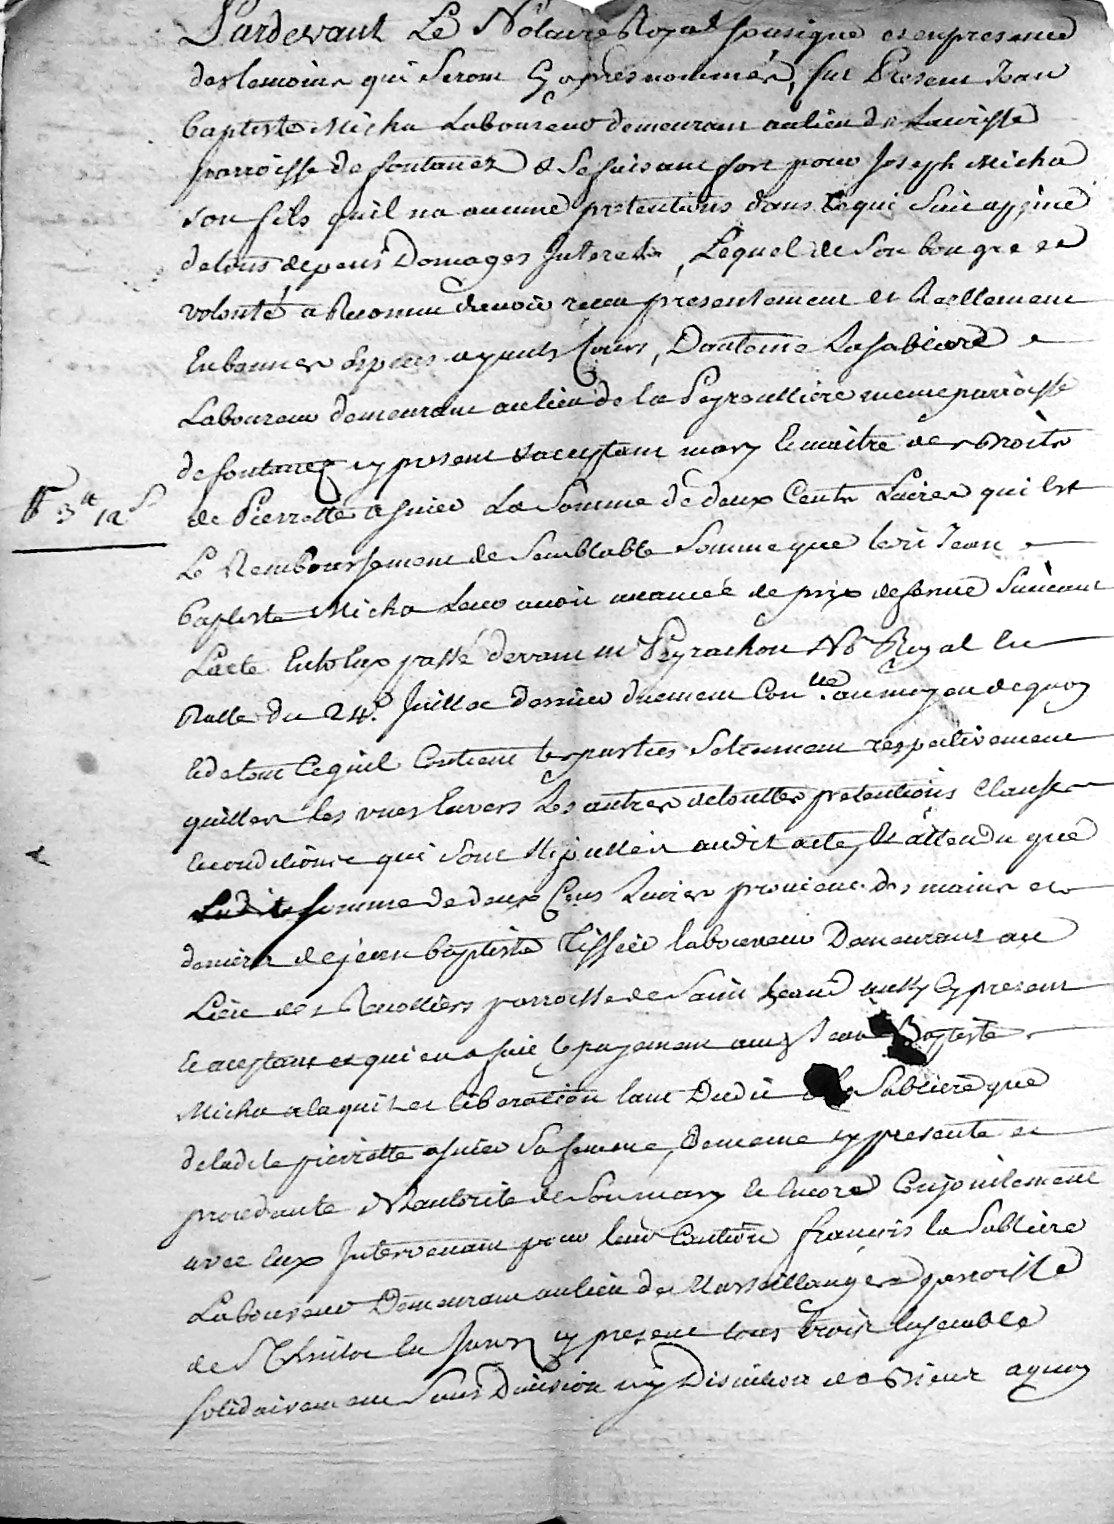 Pardevant Le Notaire Royal sousigné et en presence
des temoins qui seront cy apres nommés, fut Present Jean
baptiste Micha Laboureur demeurant au lieu de
parroisse de fontanez & se faisant fort pour Joseph Micha
son fils quil na aucune pretentions dans ce qui suit a peine
de tous depens Domages Interests, Lequel de son bon gré et
volonté a Reconnu davoir receu presentement et Reellement
En bonnes especes ayants Cours, Dantoine Lasabliere
Laboureur demeurant au lieu de la Peyroulliere meme parroisse
de fontanez cy present & acceptant mary Et maitre des droits
de Pierrette asnier La Somme de deux Cents Livres qui Est
Le Remboursement de Semblable Somme que ledit Jean
tt 3 tt 12 s
baptiste Micha Leur avoit avancée de prix de ferme Suivant
Lacte Entre Eux passé devant me Peyrachon No Royal En
datte du 24e Juillet dernier duement Con.lle au moyen de quoy
Et de tout Ce quil Contient les parties se tiennent respectivement
quittes les unes Envers Les autres de touttes pretentions Clauses
Et conditions qui sont stipullées audit acte, Et attendu que
Ladite somme de deux Cens Livres provient des mains et
deniers de jean baptiste Tissier laboureur Demeurant au
Lieu des parroisse de Saint heand aussy cy present
Et acceptant et qui en a fait le payement audit Jean Baptiste
Micha a la quitte et liberation tant Dudit la Sabliere que
de ladite pierrette asnier Sa femme, Demême cy presente et
procedante de Lautorité de Son mary Et Encore Conjointement
avec Eux Intervenant pour leur Caution françois la Sabliere
Laboureur Demeurant au lieu de Marseillange parroisse
de St Christot La fun cy present tous trois Ensemble
solidairement Sans Division ny Discution de biens a quoy